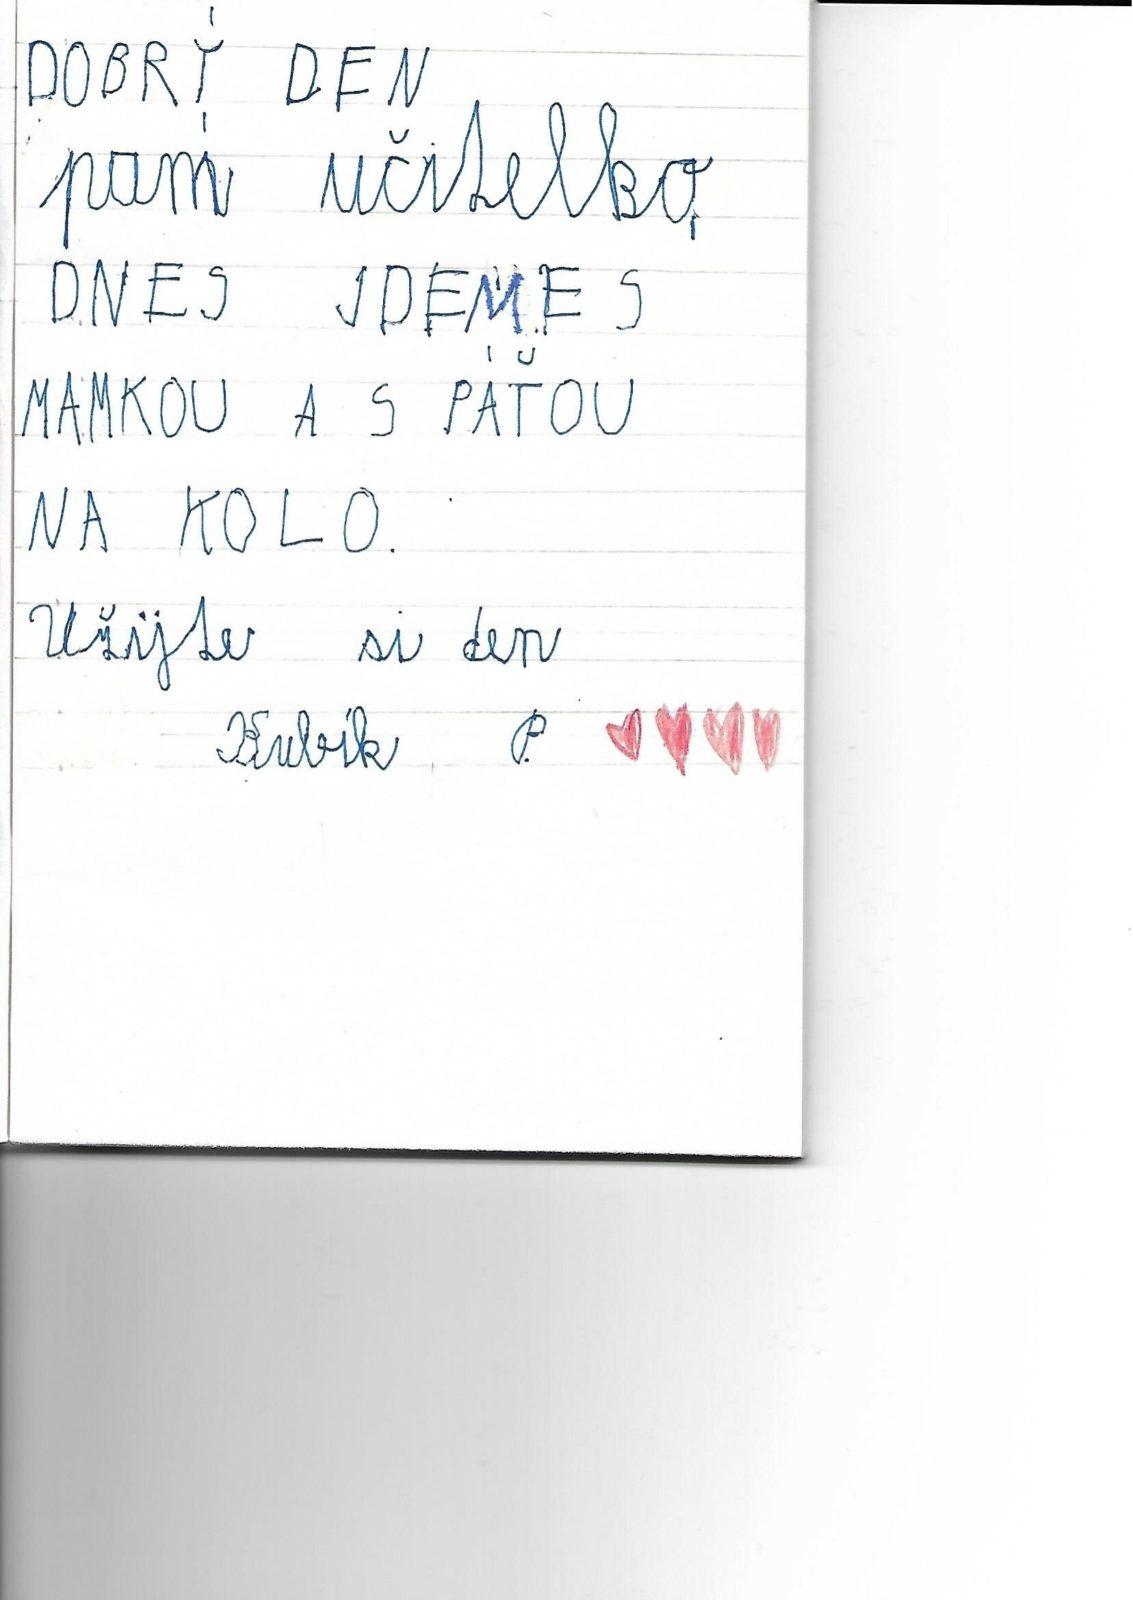 DOBRÝ DEN
paní učitelko,
DNES JDEME S
MAMKOU A S PÁŤOU
NA KOLO.
Užijte si den
Kubík P.